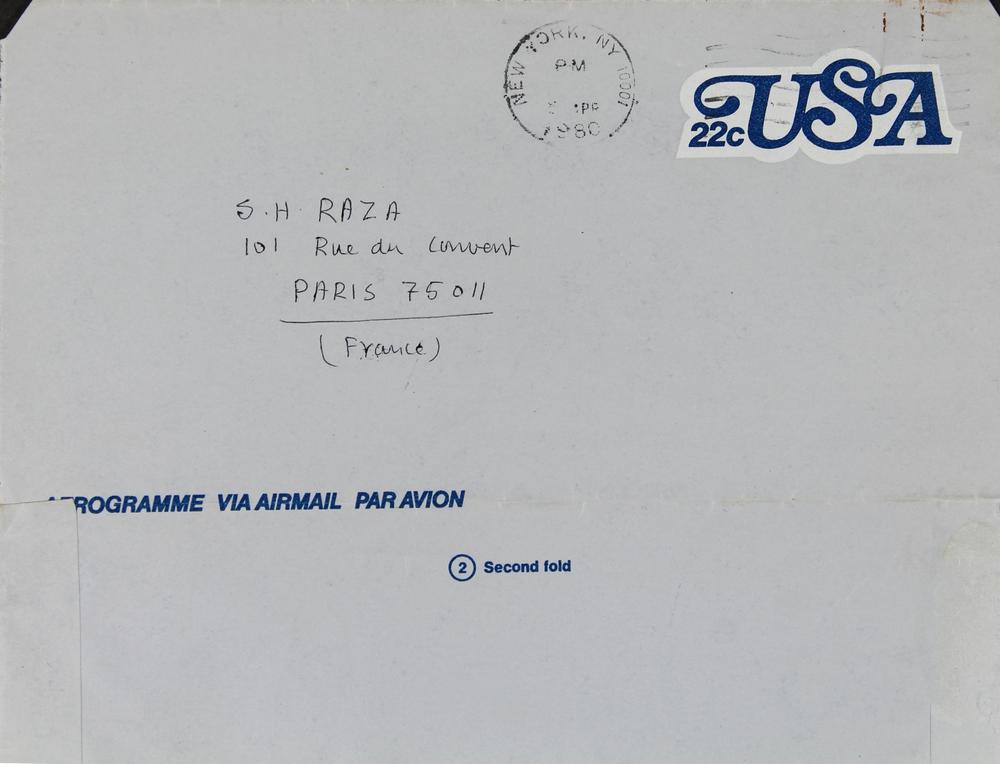 NEW YORK, NY 10001
PM
1980
22c USA
S.H. RAZA
101 Rue du Convent
PARIS 75011
(France)
AEROGRAMME VIA AIRMAIL PAR AVION
2 Second fold